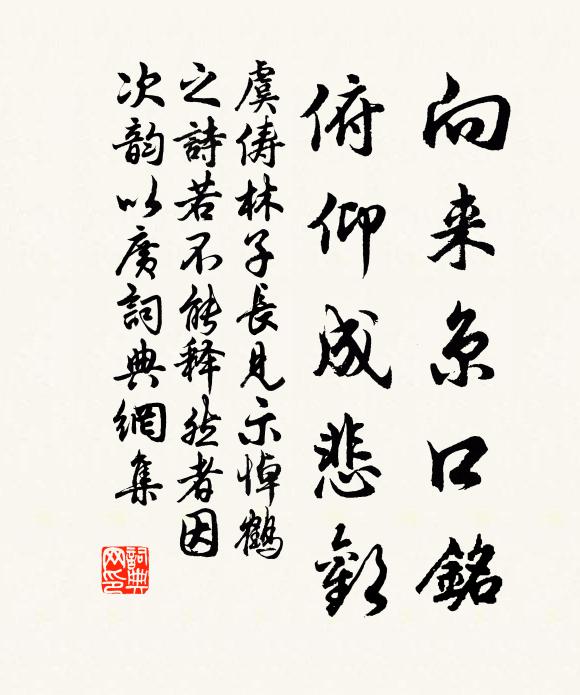 向来京口銘
俯仰成悲歡
虞儔林子長見示悼鶴
之詩若不能释然者因
次韵以廣詞典網集
詞典
网印